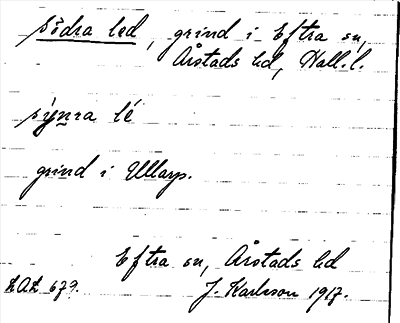 södra led, grind i Eftra sn,
Årstads hd, Hall. l.
sýnra lé
grind i Ullarp.
Eftra sn, Årstads hd
LAL 679. J. Karlsson 1917.